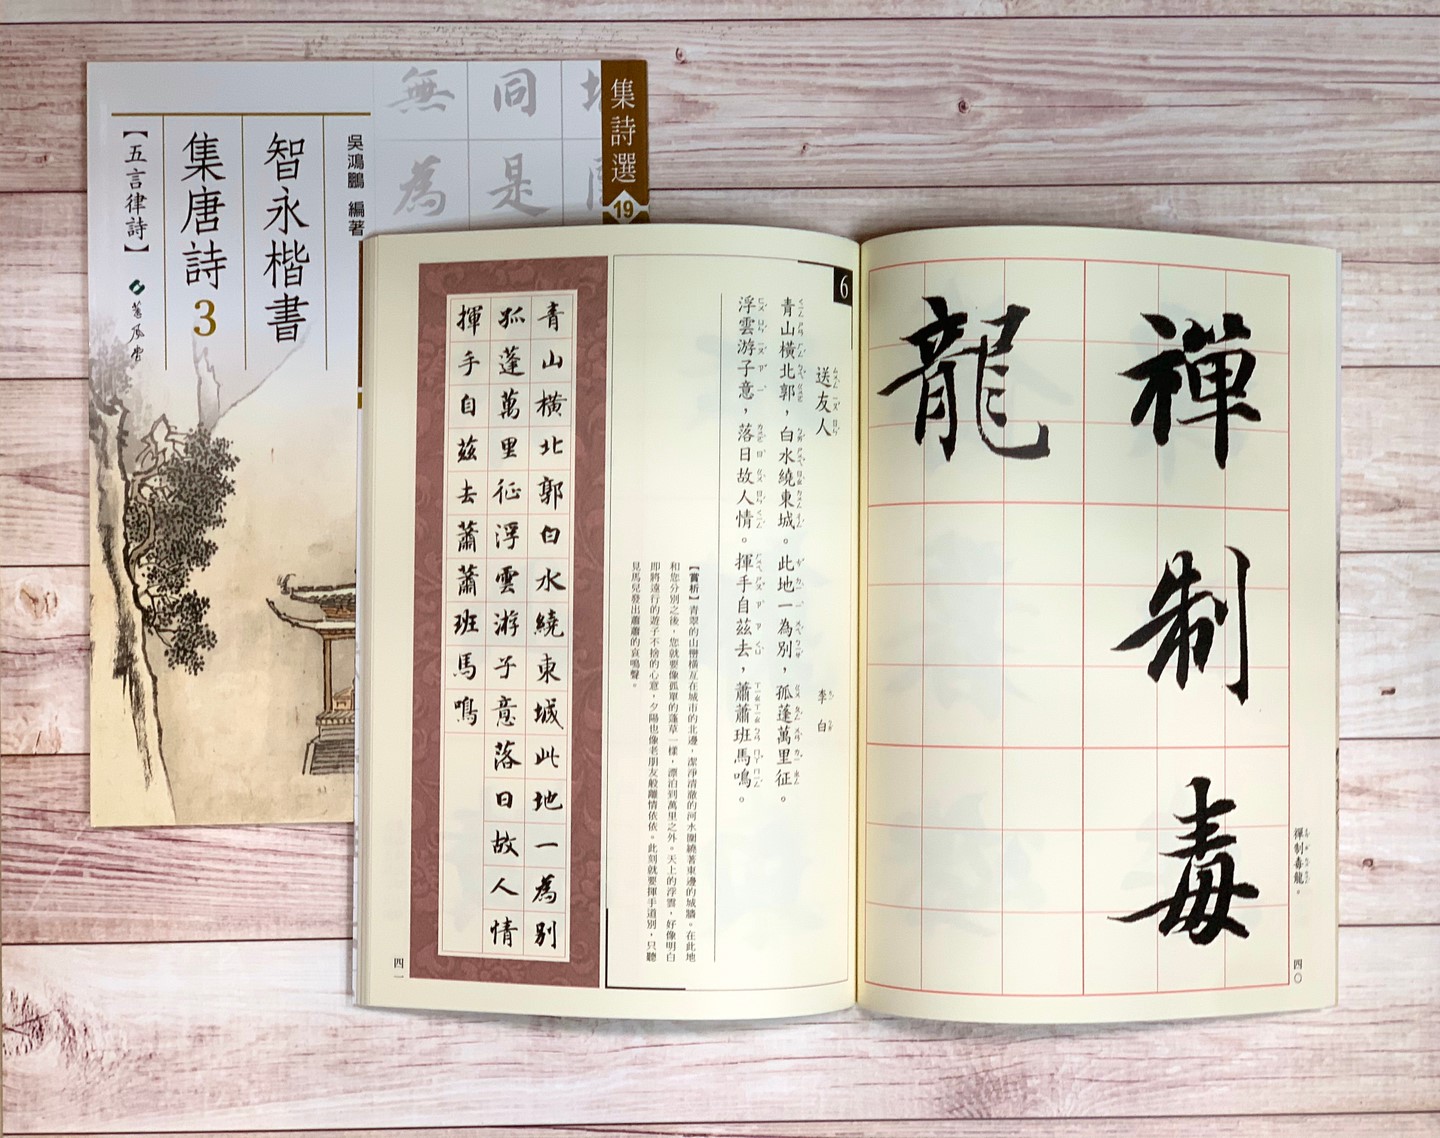 集詩選
19
無 同
為 是
吳鴻鵬 編著
智永楷書
集唐詩3
【五言律詩】
蕙風堂
禪制毒
龍
禪制毒龍。
四〇
6
送友人
李白
青山橫北郭，白水繞東城。此地一為別，孤蓬萬里征。
浮雲游子意，落日故人情。揮手自茲去，蕭蕭班馬鳴。
【賞析】青翠的山巒橫亙在城市的北邊，潔淨清澈的河水圍繞著東邊的城牆。在此地
和您分別之後，您就要像孤單的蓬草一樣，漂泊到萬里之外。天上的浮雲，好像明白
即將遠行的遊子不捨的心意，夕陽也像老朋友般離情依依。此刻就要揮手道別，只聽
見馬兒發出蕭蕭的哀鳴聲。
青山橫北郭白水繞東城此地一為別
孤蓬萬里征浮雲游子意落日故人情
揮手自茲去蕭蕭班馬鳴
四一